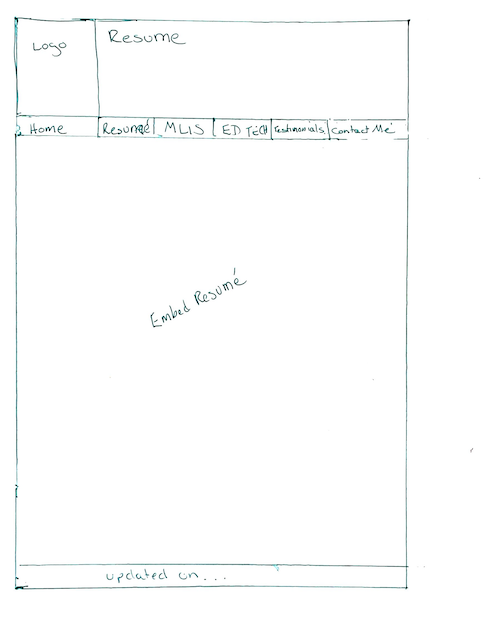 Logo
Resume
Home Resumé MLIS ED TECH Testimonials Contact Me
Embed Resumé
updated on...